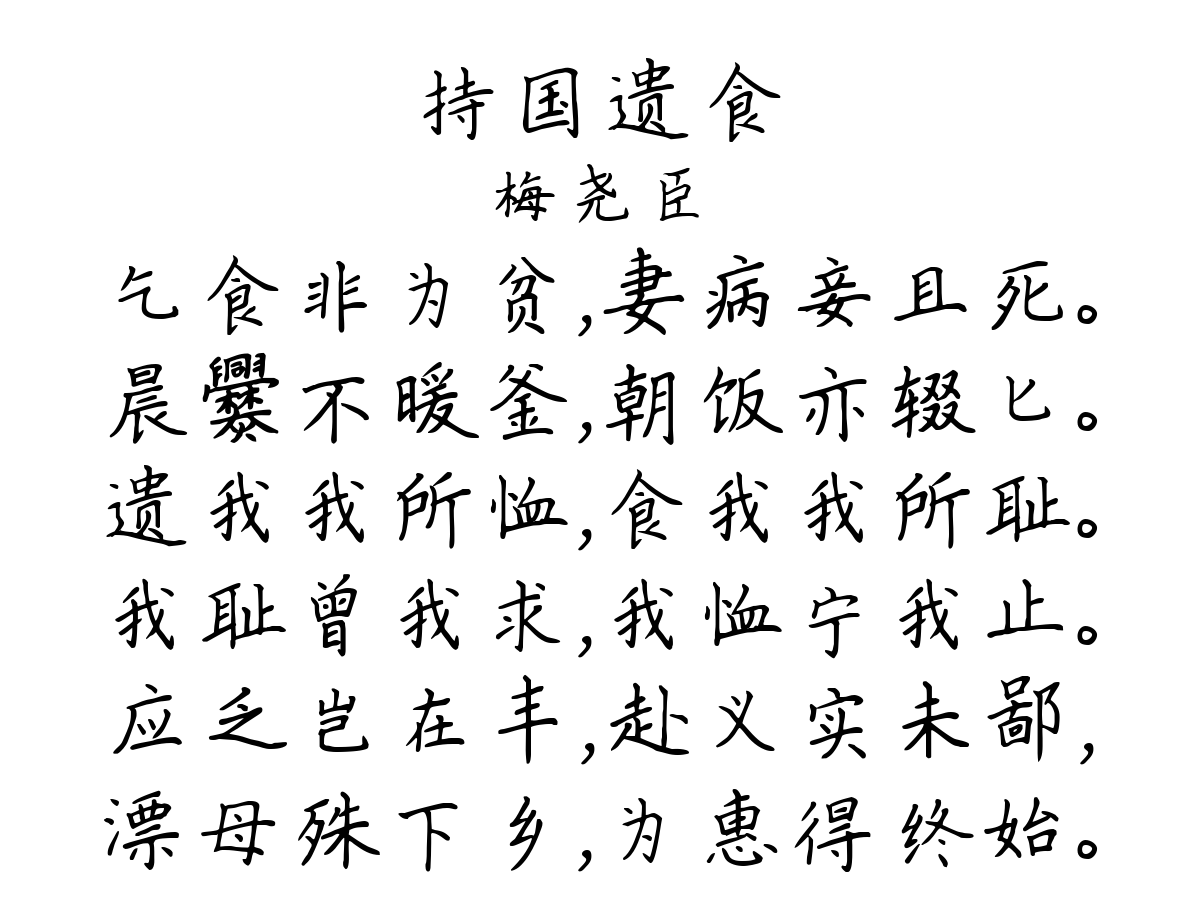 持国遗食
梅尧臣
乞食非为贫,妻病妾且死。
晨爨不暖釜,朝饭亦辍匕。
遗我我所恤,食我我所耻。
我耻曾我求,我恤宁我止。
应乏岂在丰,赴义实未鄙,
漂母殊下乡,为惠得终始。